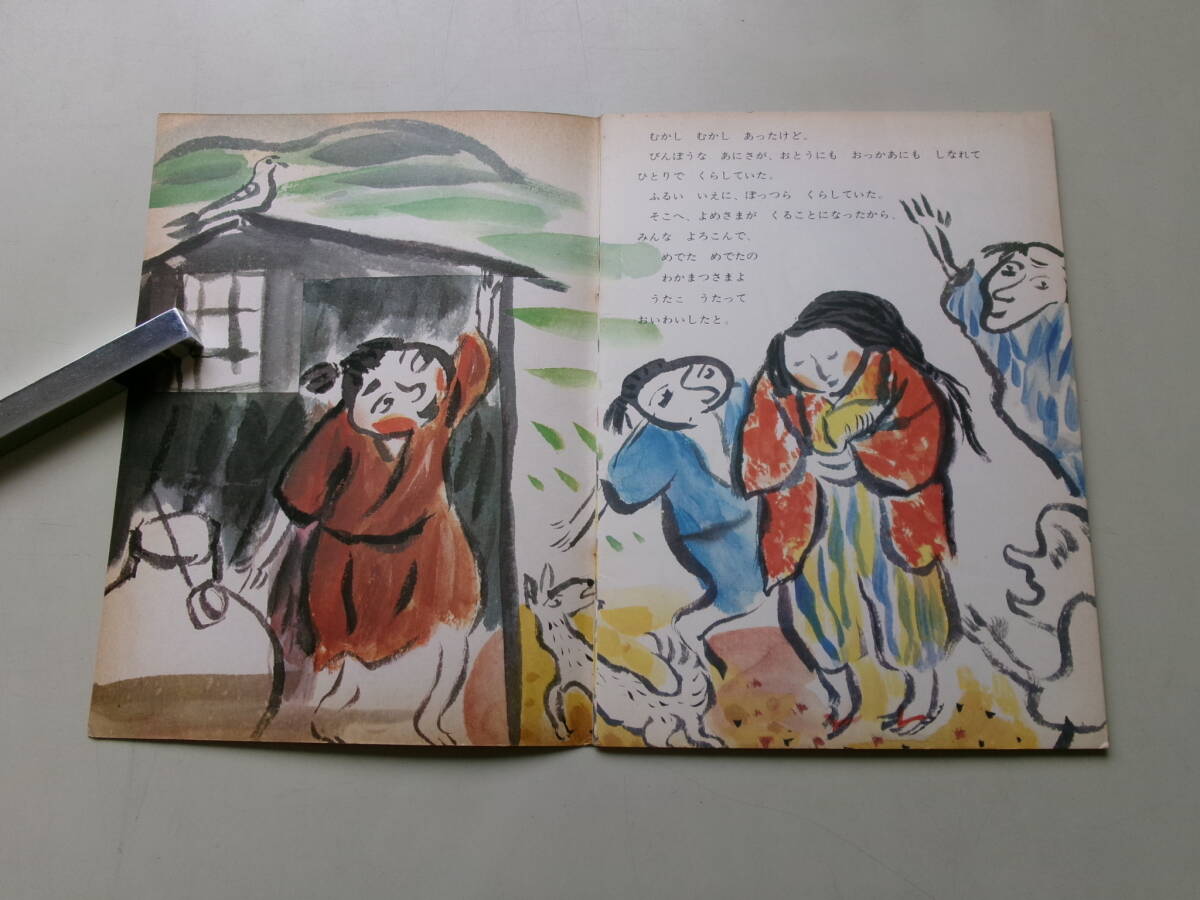 むかし むかし あったけど。
びんぼうな あにさが、おとうにも おっかあにも しなれて
ひとりで くらしていた。
ふるい いえに、ぽっつら くらしていた。
そこへ、よめさまが くることになったから、
みんな よろこんで、
めでた めでたの
わかまつさまよ
うたこ うたって
おいわいしたと。